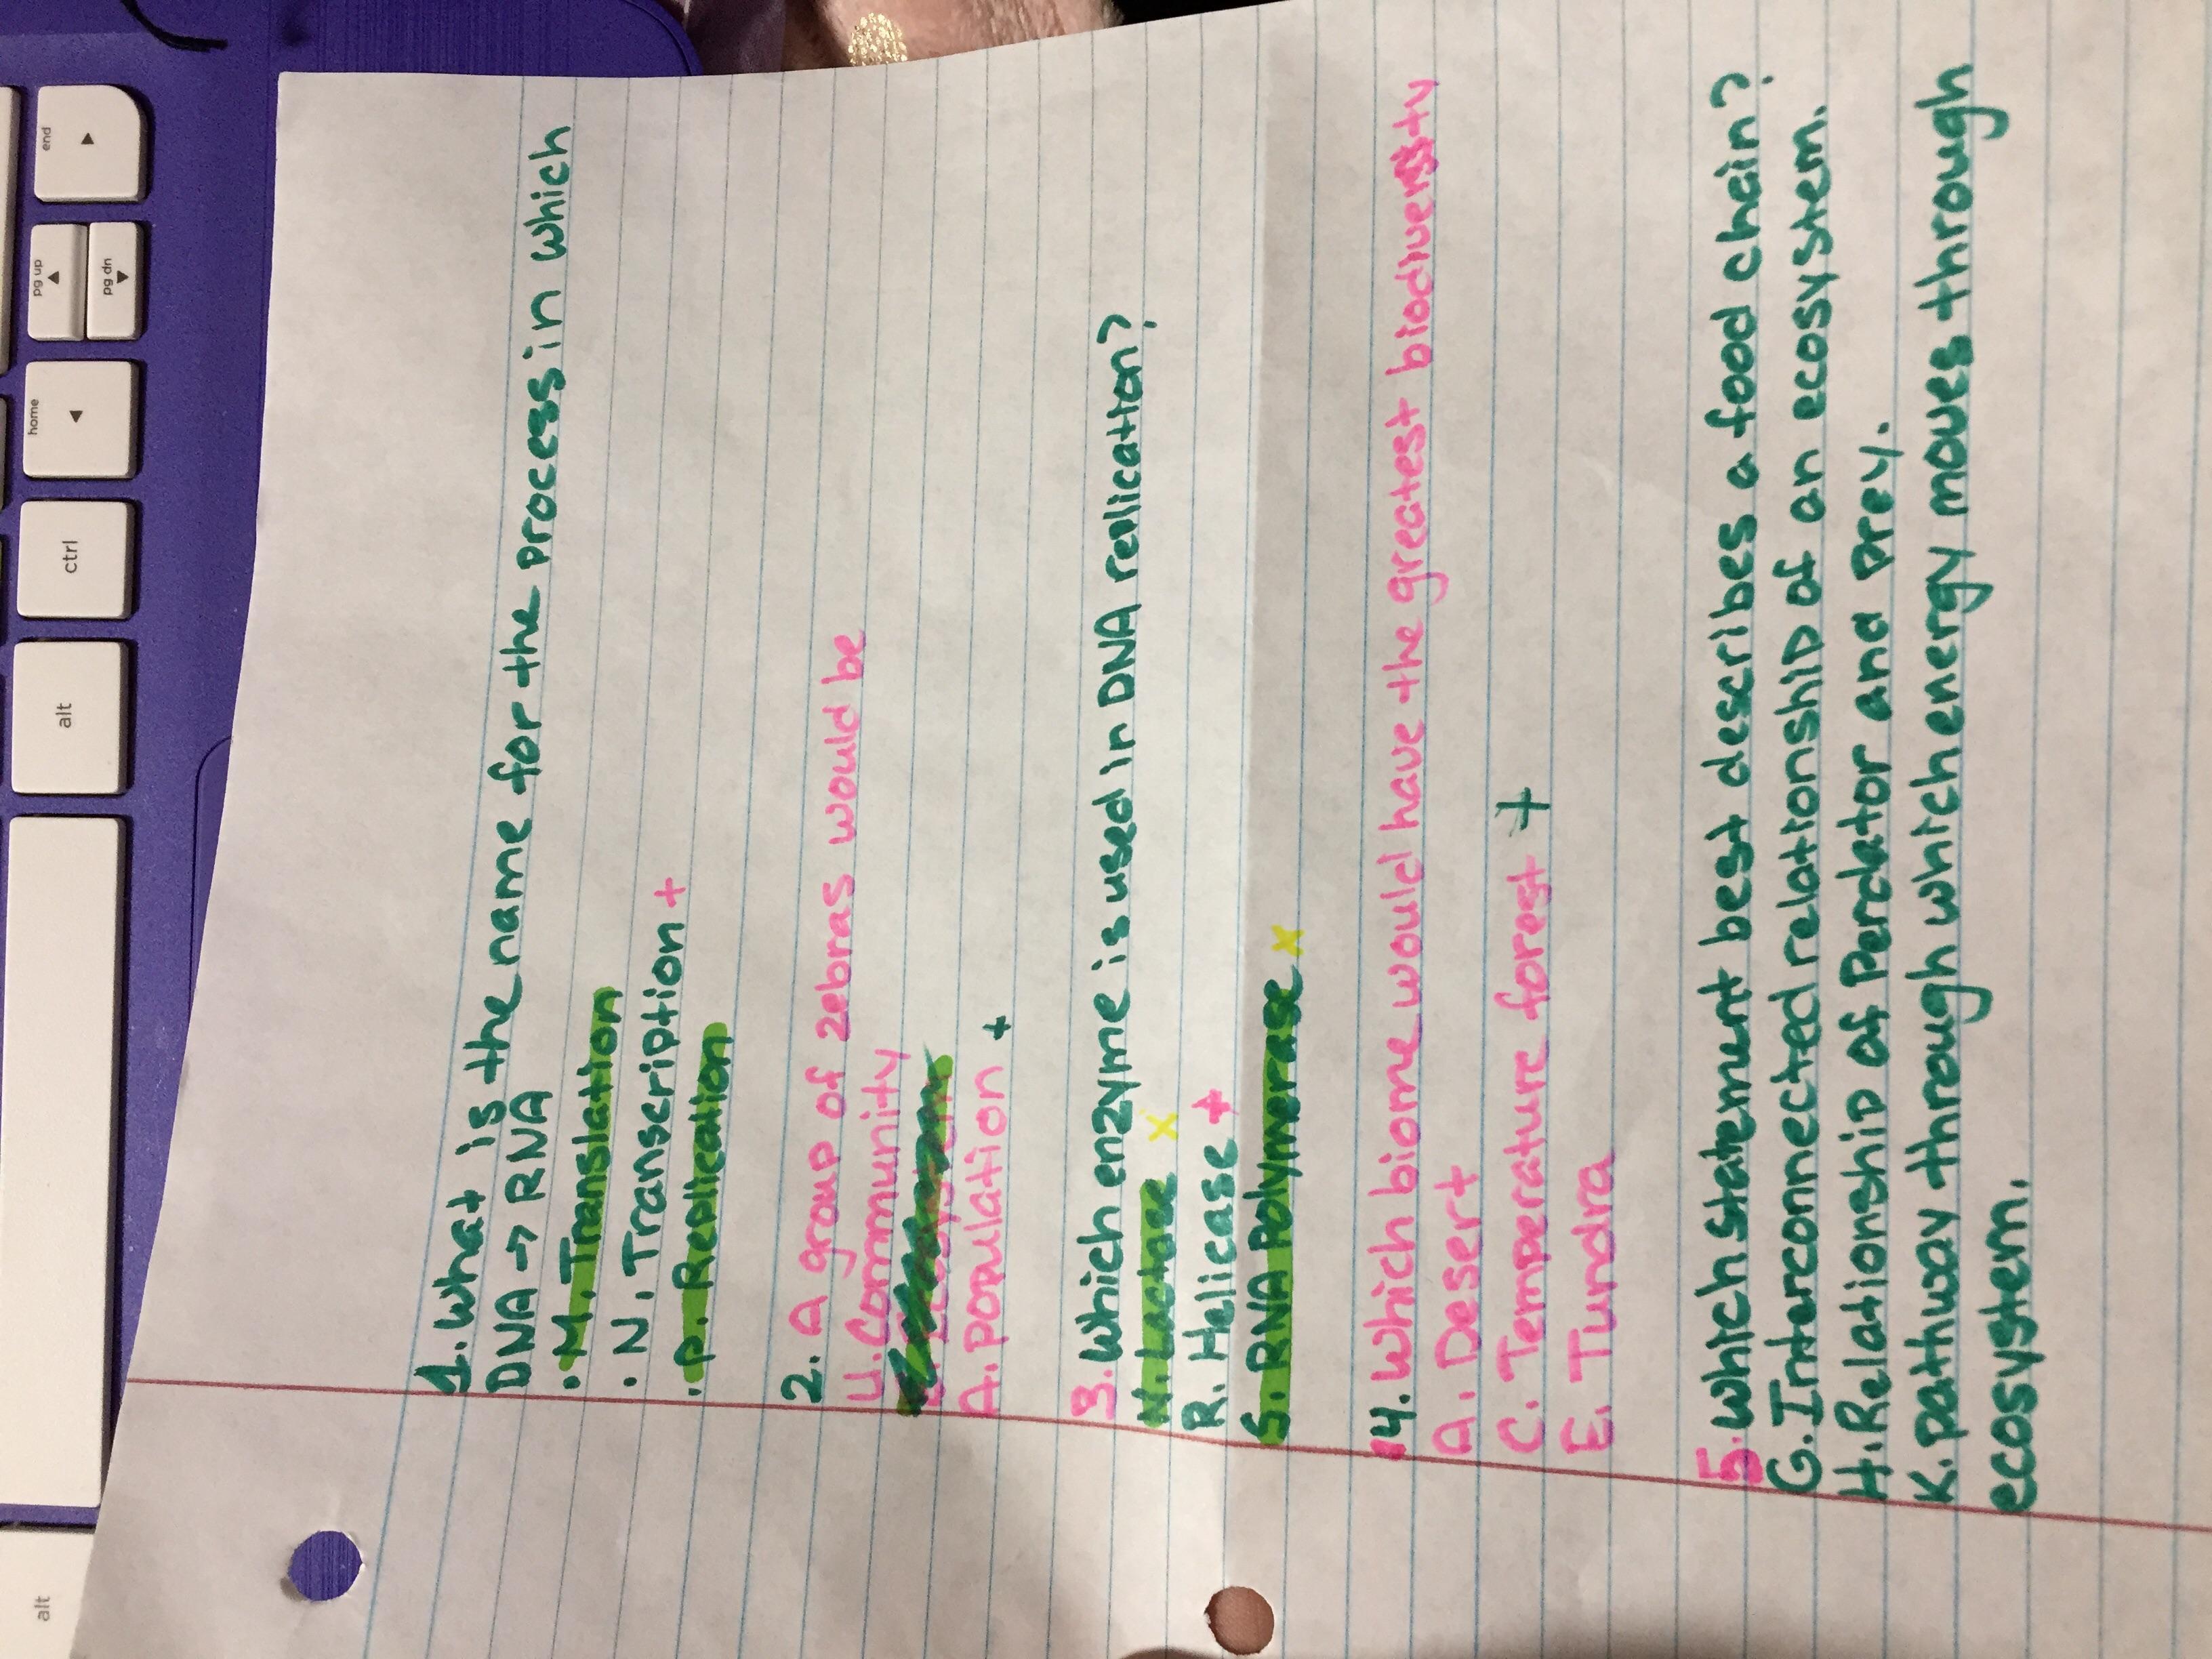 1. What is the name for the process in which
DNA → RNA
• M. Translation
• N. Transcription +
• P. Replication
2. A group of zebras would be
U. Community
A. Population +
3. Which enzyme is used in DNA replication?
N. Lactase x
R. Helicase +
S. RNA Polymerase x
14. Which biome would have the greatest biodiversity
A. Desert
C. Temperature forest +
E. Tundra
5. Which statement best describes a food chain?
G. Interconnected relationship of an ecosystem.
H. Relationship of Perdator and Prey.
K. pathway through which energy moves through
ecosystem.
end
pg up
pg dn
home
ctrl
alt
alt